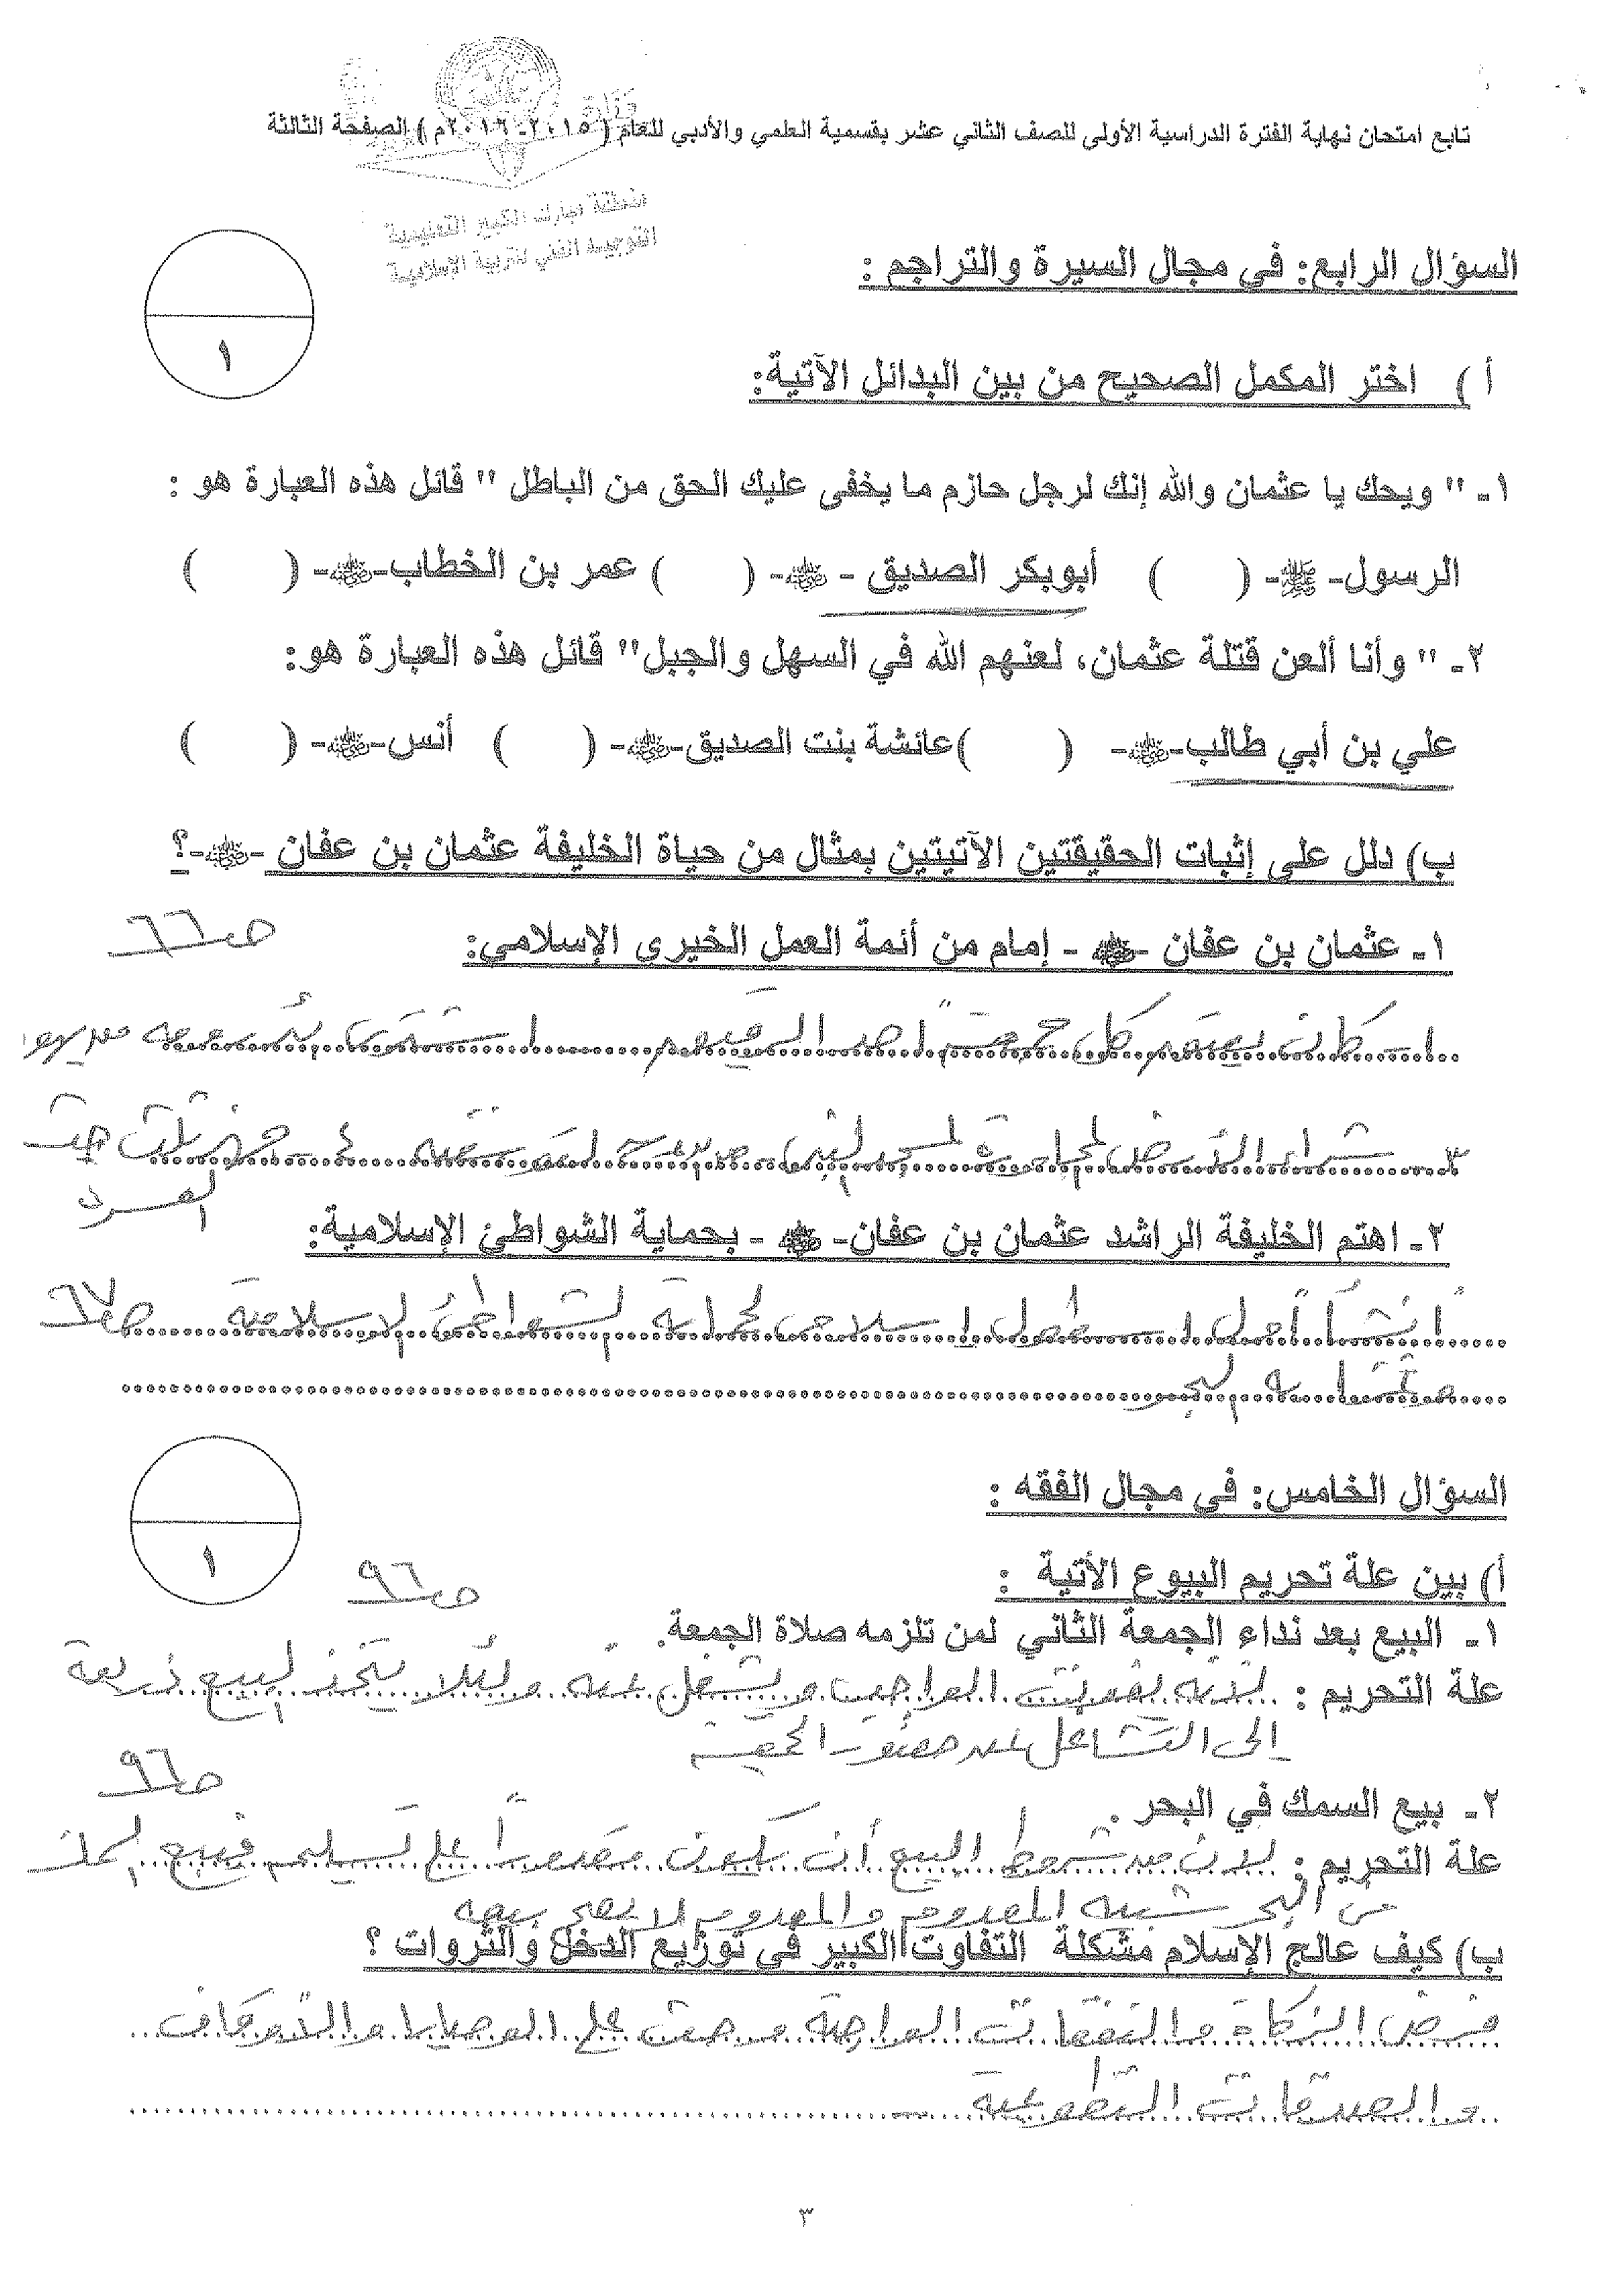 تابع امتحان نهاية الفترة الدراسية الأولى للصف الثاني عشر بقسمية العلمي والأدبي للعام ( ٢٠١٥-٢٠١٦م ) الصفحة الثالثة
منطقة مبارك الكبير التعليمية
التوجيه الفني للتربية الإسلامية
السؤال الرابع: في مجال السيرة والتراجم :
١
أ ) اختر المكمل الصحيح من بين البدائل الآتية:
١- " ويحك يا عثمان والله إنك لرجل حازم ما يخفى عليك الحق من الباطل " قائل هذه العبارة هو :
الرسول- ﷺ- ( ) أبوبكر الصديق - رضي الله عنه- ( ) عمر بن الخطاب-رضي الله عنه- ( )
٢- " وأنا ألعن قتلة عثمان، لعنهم الله في السهل والجبل" قائل هذه العبارة هو:
علي بن أبي طالب-رضي الله عنه- ( ) عائشة بنت الصديق-رضي الله عنه- ( ) أنس-رضي الله عنه- ( )
ب) دلل على إثبات الحقيقتين الآتيتين بمثال من حياة الخليفة عثمان بن عفان -رضي الله عنه-؟
١- عثمان بن عفان -رضي الله عنه - إمام من أئمة العمل الخيري الإسلامي: ص٦٦
١- كان يعتق كل جمعة أحد الرقيق اشترى بئر رومة من يهودي
٣- شراء الأرض المجاورة لمسجد النبي صلى الله عليه وسلم لتوسعته ٤- جهز ثلث جيش
العسرة
٢- اهتم الخليفة الراشد عثمان بن عفان- رضي الله عنه - بحماية الشواطئ الإسلامية:
أنشأ أول اسطول اسلامي لحماية الشواطئ الاسلامية
السؤال الخامس: في مجال الفقه :
١
أ) بين علة تحريم البيوع الأتية : ص٩٦
١- البيع بعد نداء الجمعة الثاني لمن تلزمه صلاة الجمعة.
علة التحريم : لأنه يفوت الواجب ويشغل عنه ولئلا يتخذ البيع ذريعة
إلى التشاغل عند حضور الجمعة
ص٩٦
٢- بيع السمك في البحر .
علة التحريم : لأن من شروط البيع أن يكون مقدوراً على تسليمه فبيع السمك
في البحر شبيه المعدوم والمعدوم لا يصح بيعه
ب) كيف عالج الإسلام مشكلة التفاوت الكبير في توزيع الدخل والثروات ؟
فرض الزكاة والنفقات الواجبة وحث على الوصايا والأوقاف
والصدقات التطوعية
٣